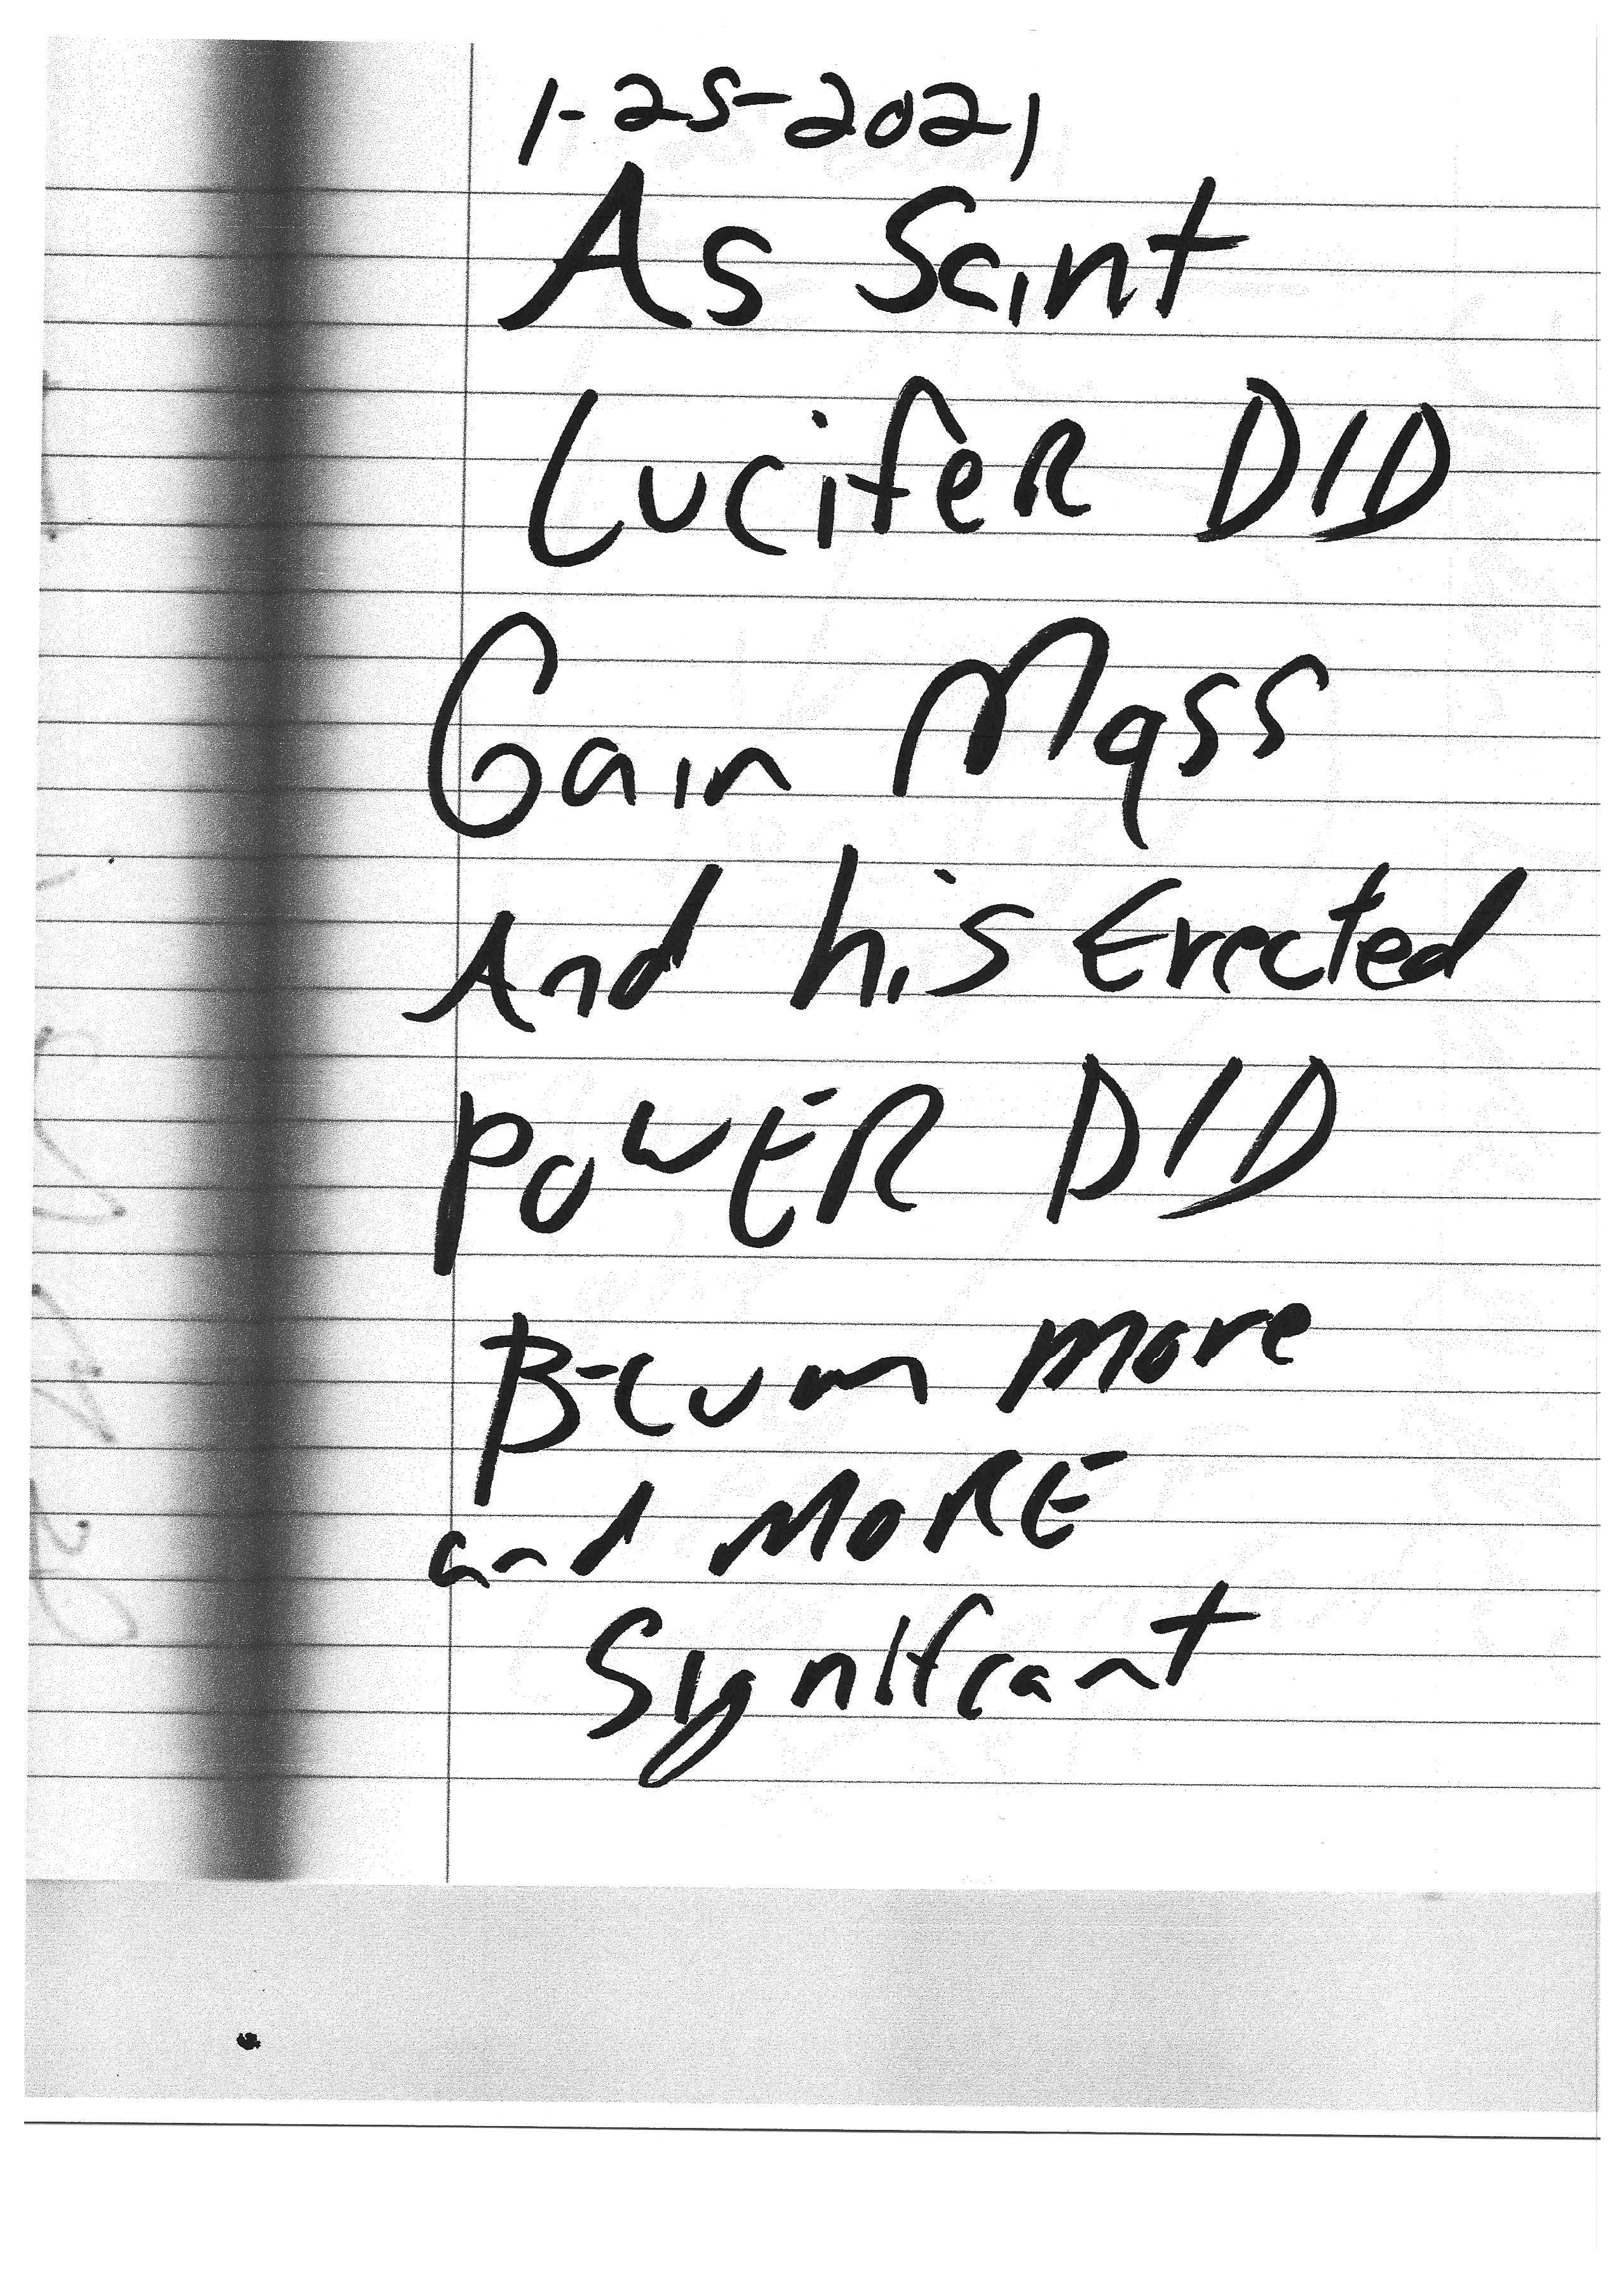 1-25-2021
As Saint
LucifeR DID
Gain Mass
And his Erected
PowER DID
B-cum more
and MoRE
Signifcant